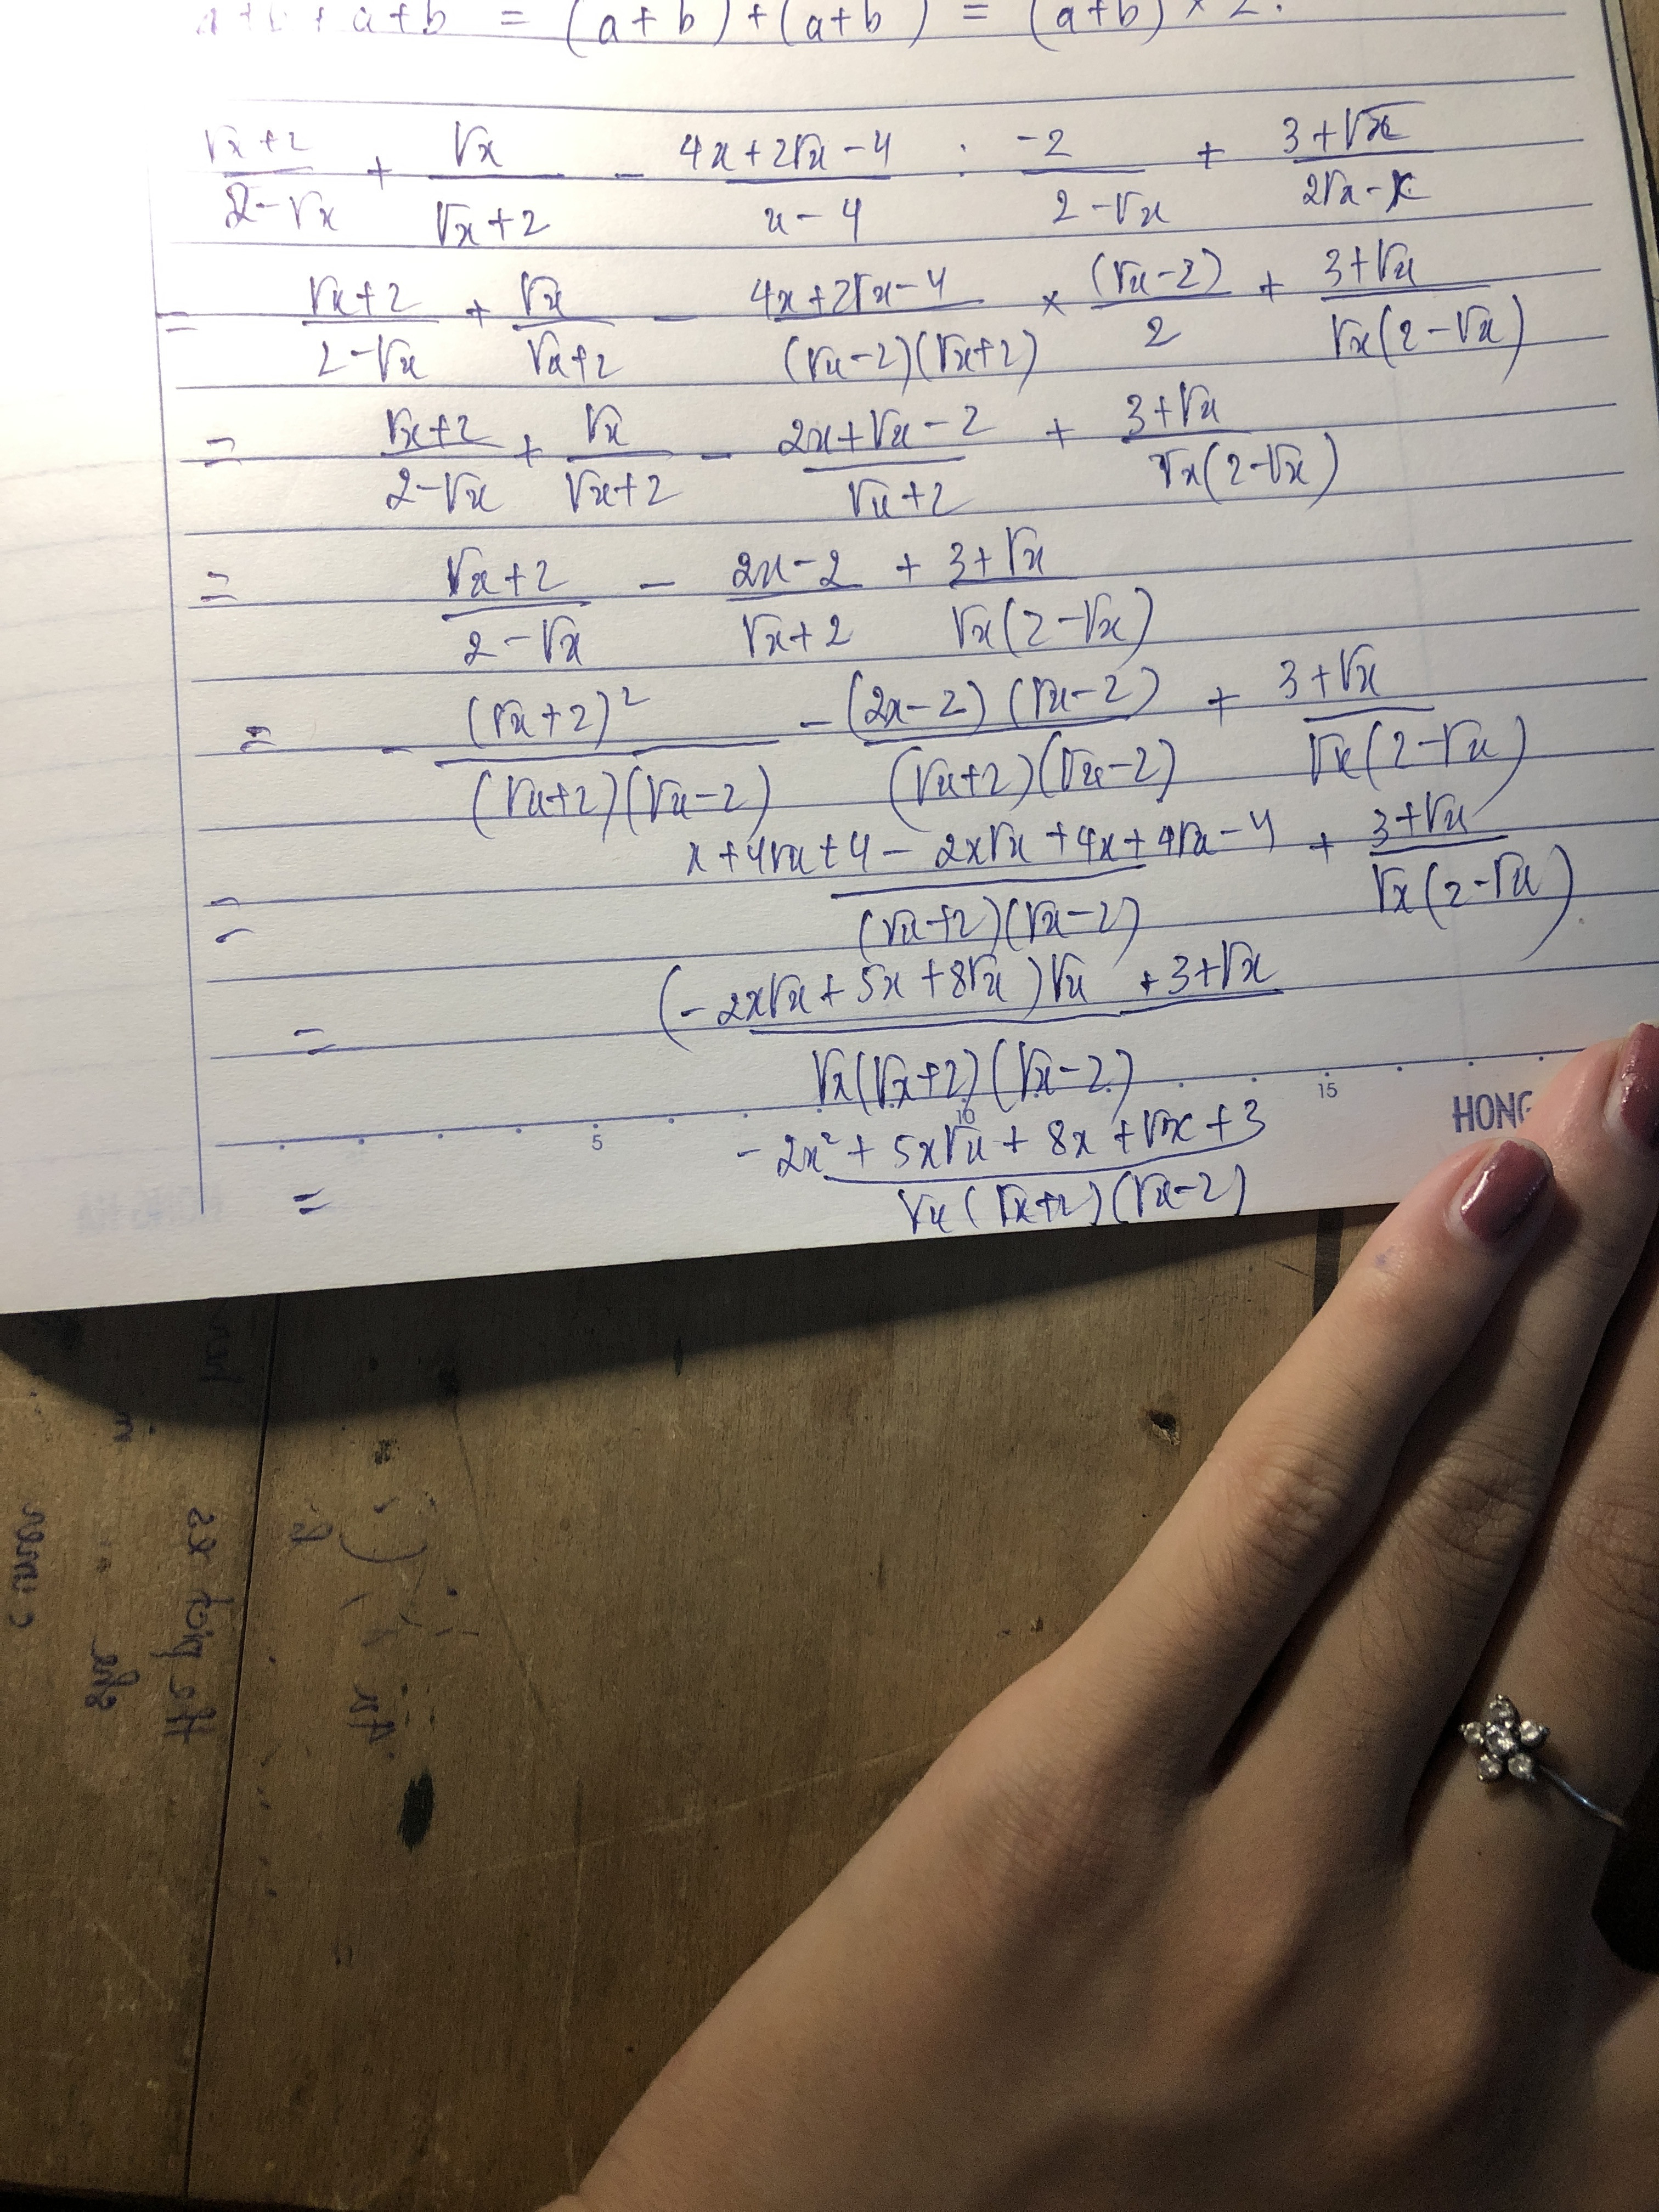 a+b+a+b = (a+b)+(a+b) = (a+b)×2.
(√x+2)/(2-√x) + √x/(√x+2) - (4x+2√x-4)/(x-4) : -2/(2-√x) + (3+√x)/(2√x-x)
= (√x+2)/(2-√x) + √x/(√x+2) - (4x+2√x-4)/((√x-2)(√x+2)) × (√x-2)/2 + (3+√x)/(√x(2-√x))
= (√x+2)/(2-√x) + √x/(√x+2) - (2x+√x-2)/(√x+2) + (3+√x)/(√x(2-√x))
= (√x+2)/(2-√x) - (2x-2)/(√x+2) + (3+√x)/(√x(2-√x))
= - (√x+2)²/((√x+2)(√x-2)) - (2x-2)(√x-2)/((√x+2)(√x-2)) + (3+√x)/(√x(2-√x))
= (x+4√x+4-2x√x+4x+4√x-4)/((√x+2)(√x-2)) + (3+√x)/(√x(2-√x))
= ((-2x√x+5x+8√x)√x+3+√x)/(√x(√x+2)(√x-2))
= (-2x²+5x√x+8x+√x+3)/(√x(√x+2)(√x-2))
5 10 15
HONG